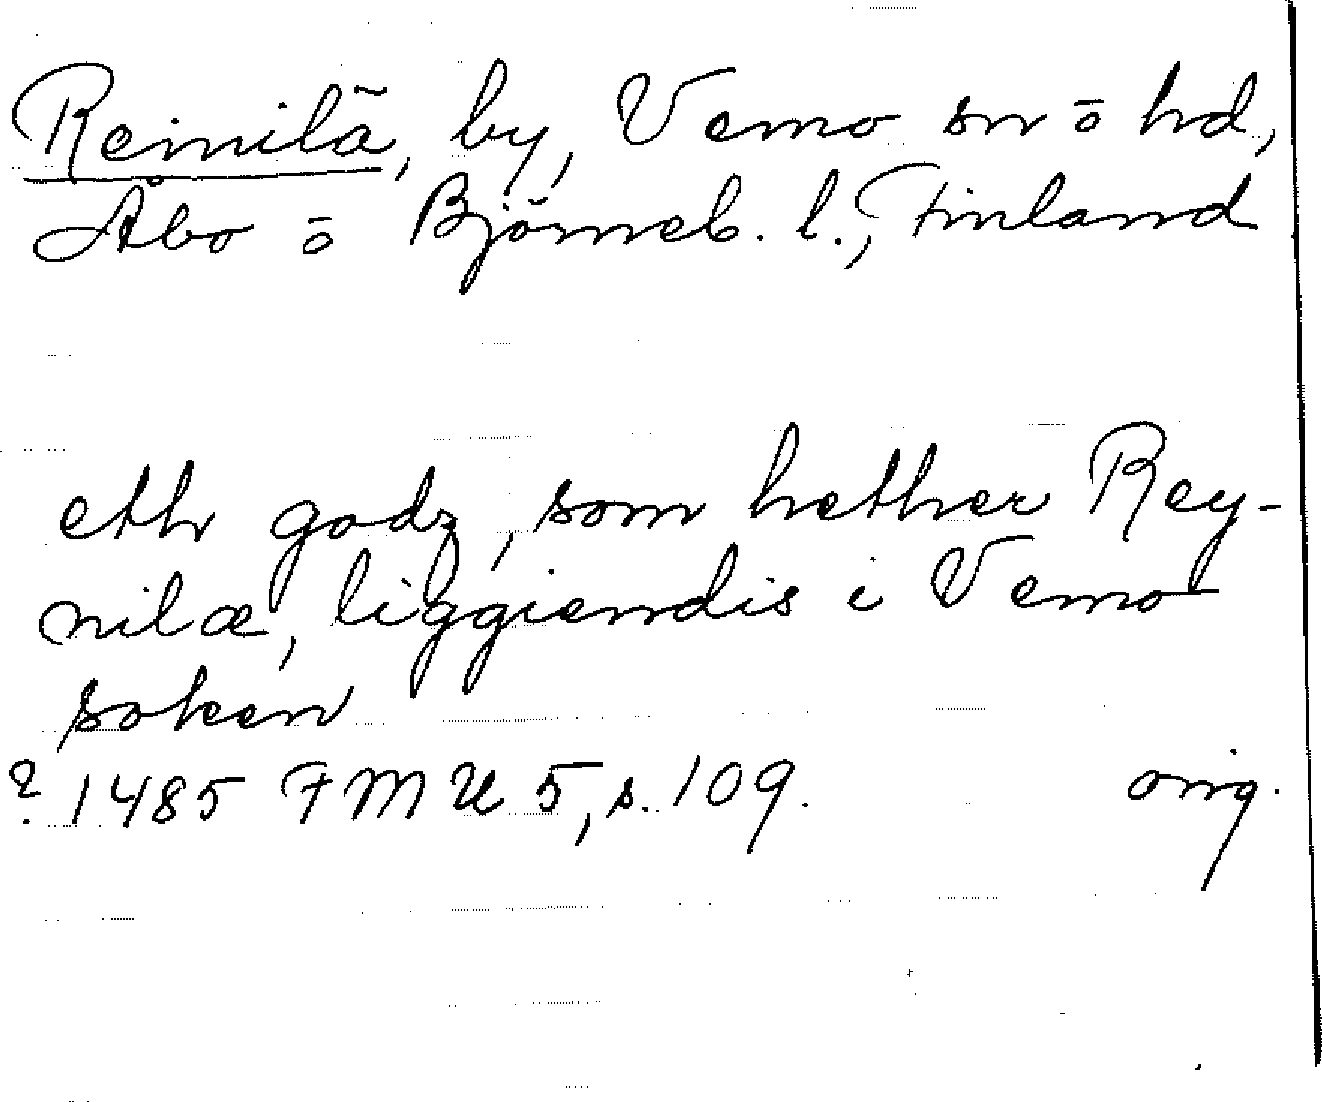 Reinilä, by, Vemo sn ō hd,
Åbo ō Björneb. l., Finland
eth godz, som hether Rey-
nilæ, liggiendis i Vemo
soken
? 1485 FMU 5, s. 109. orig.